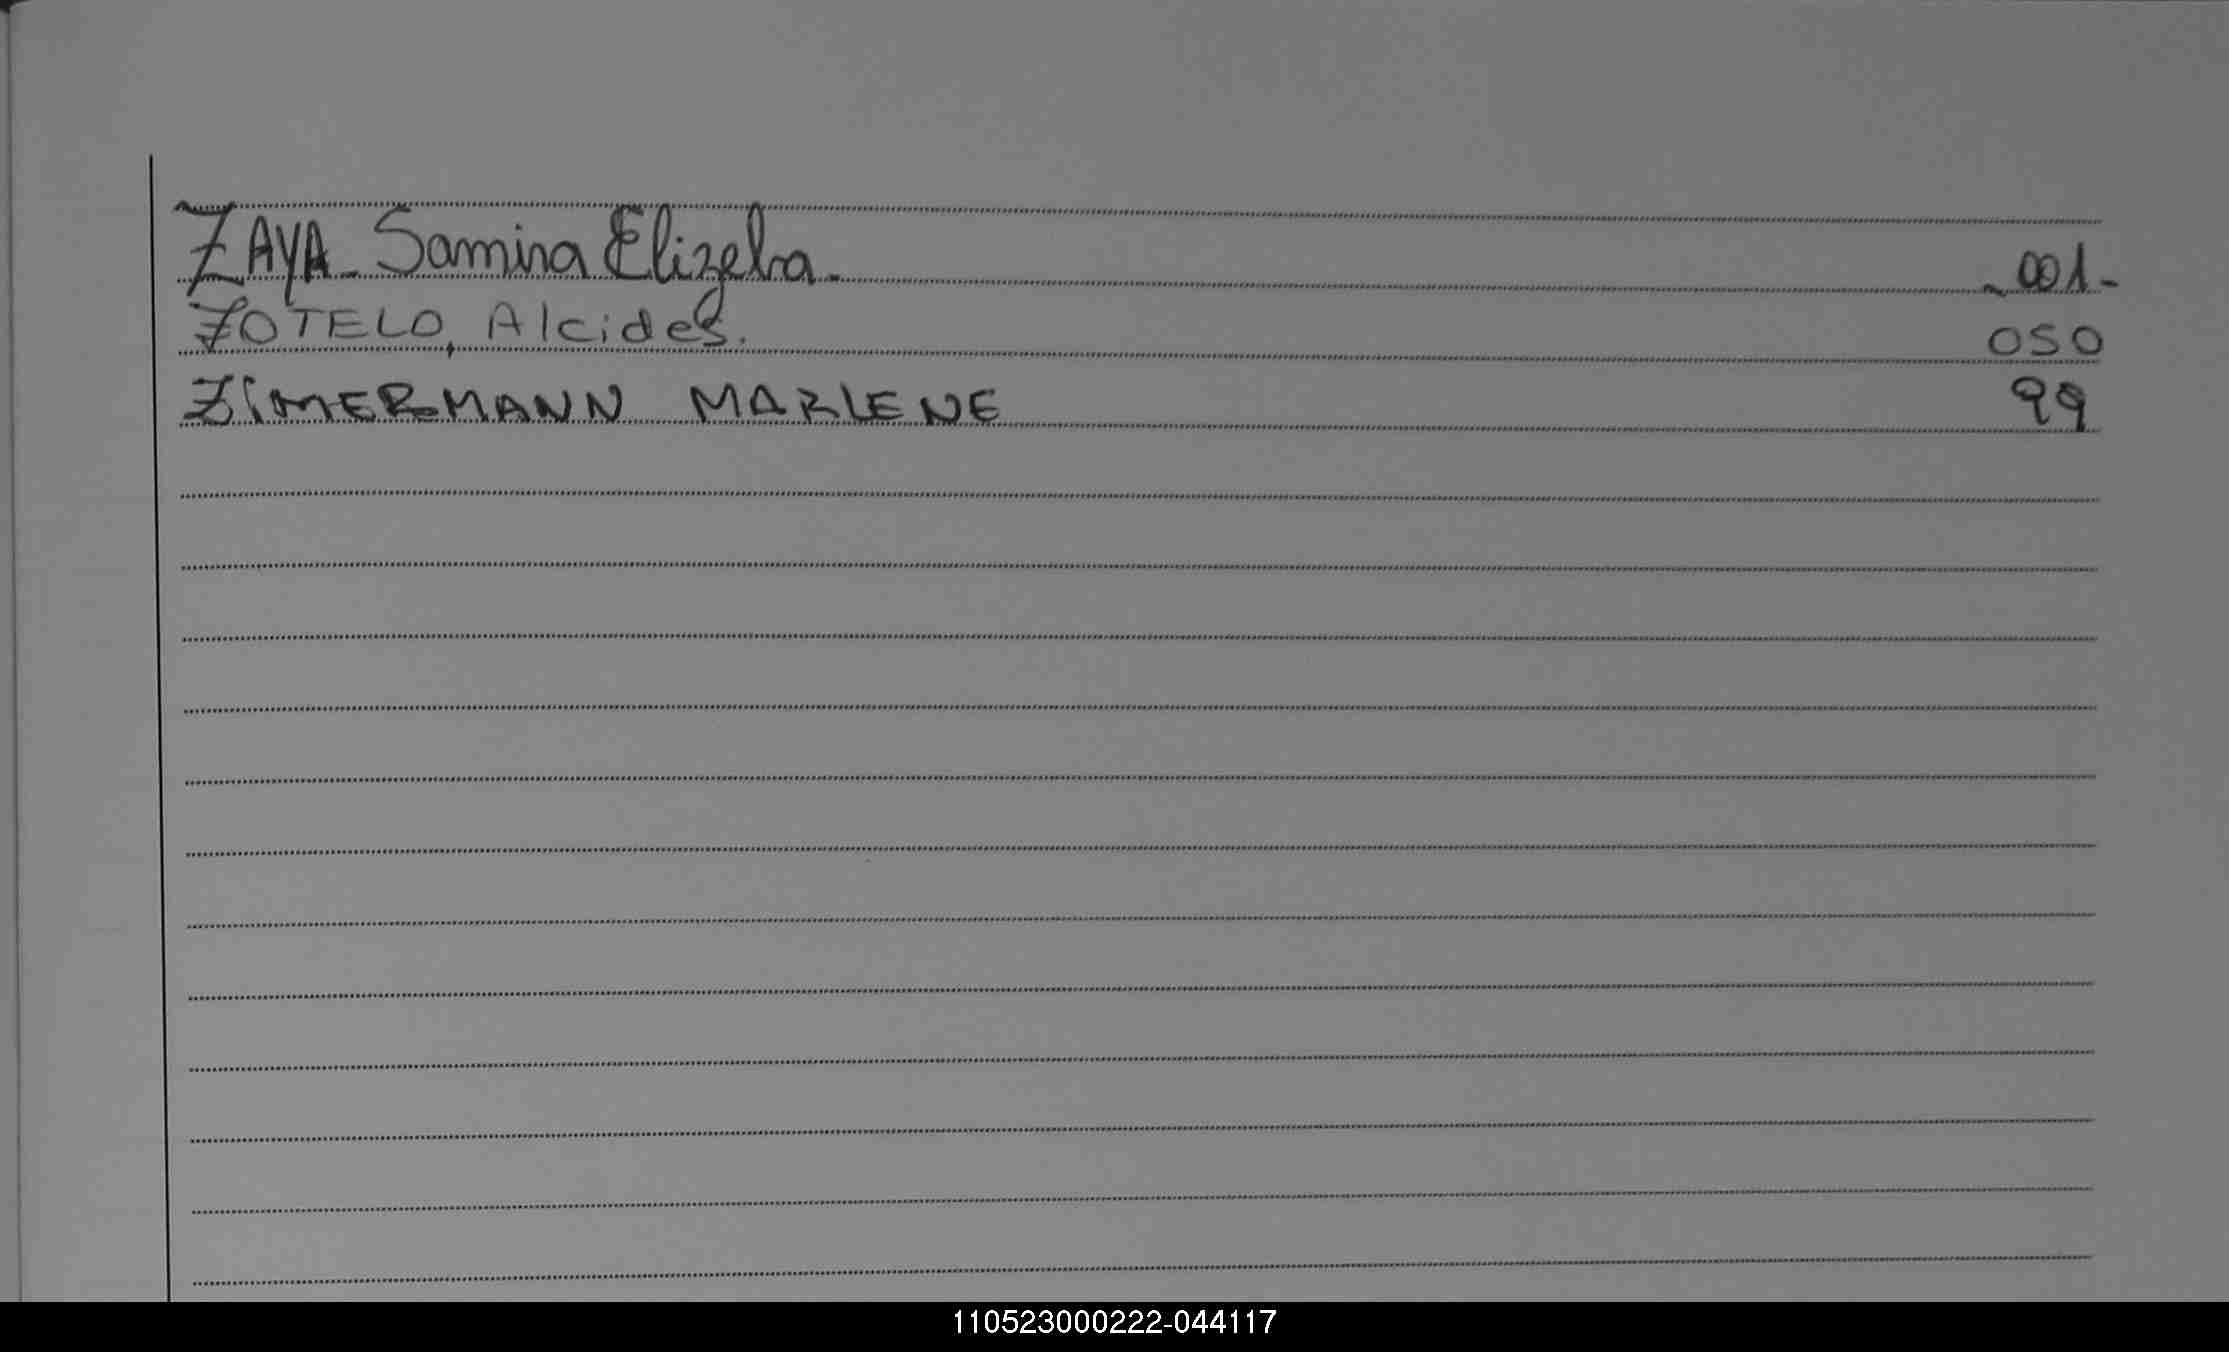 ZAYA - Samira Elizeba. -001-
ZOTELO, Alcides. 050
ZIMERMANN MARLENE 99
110523000222-044117